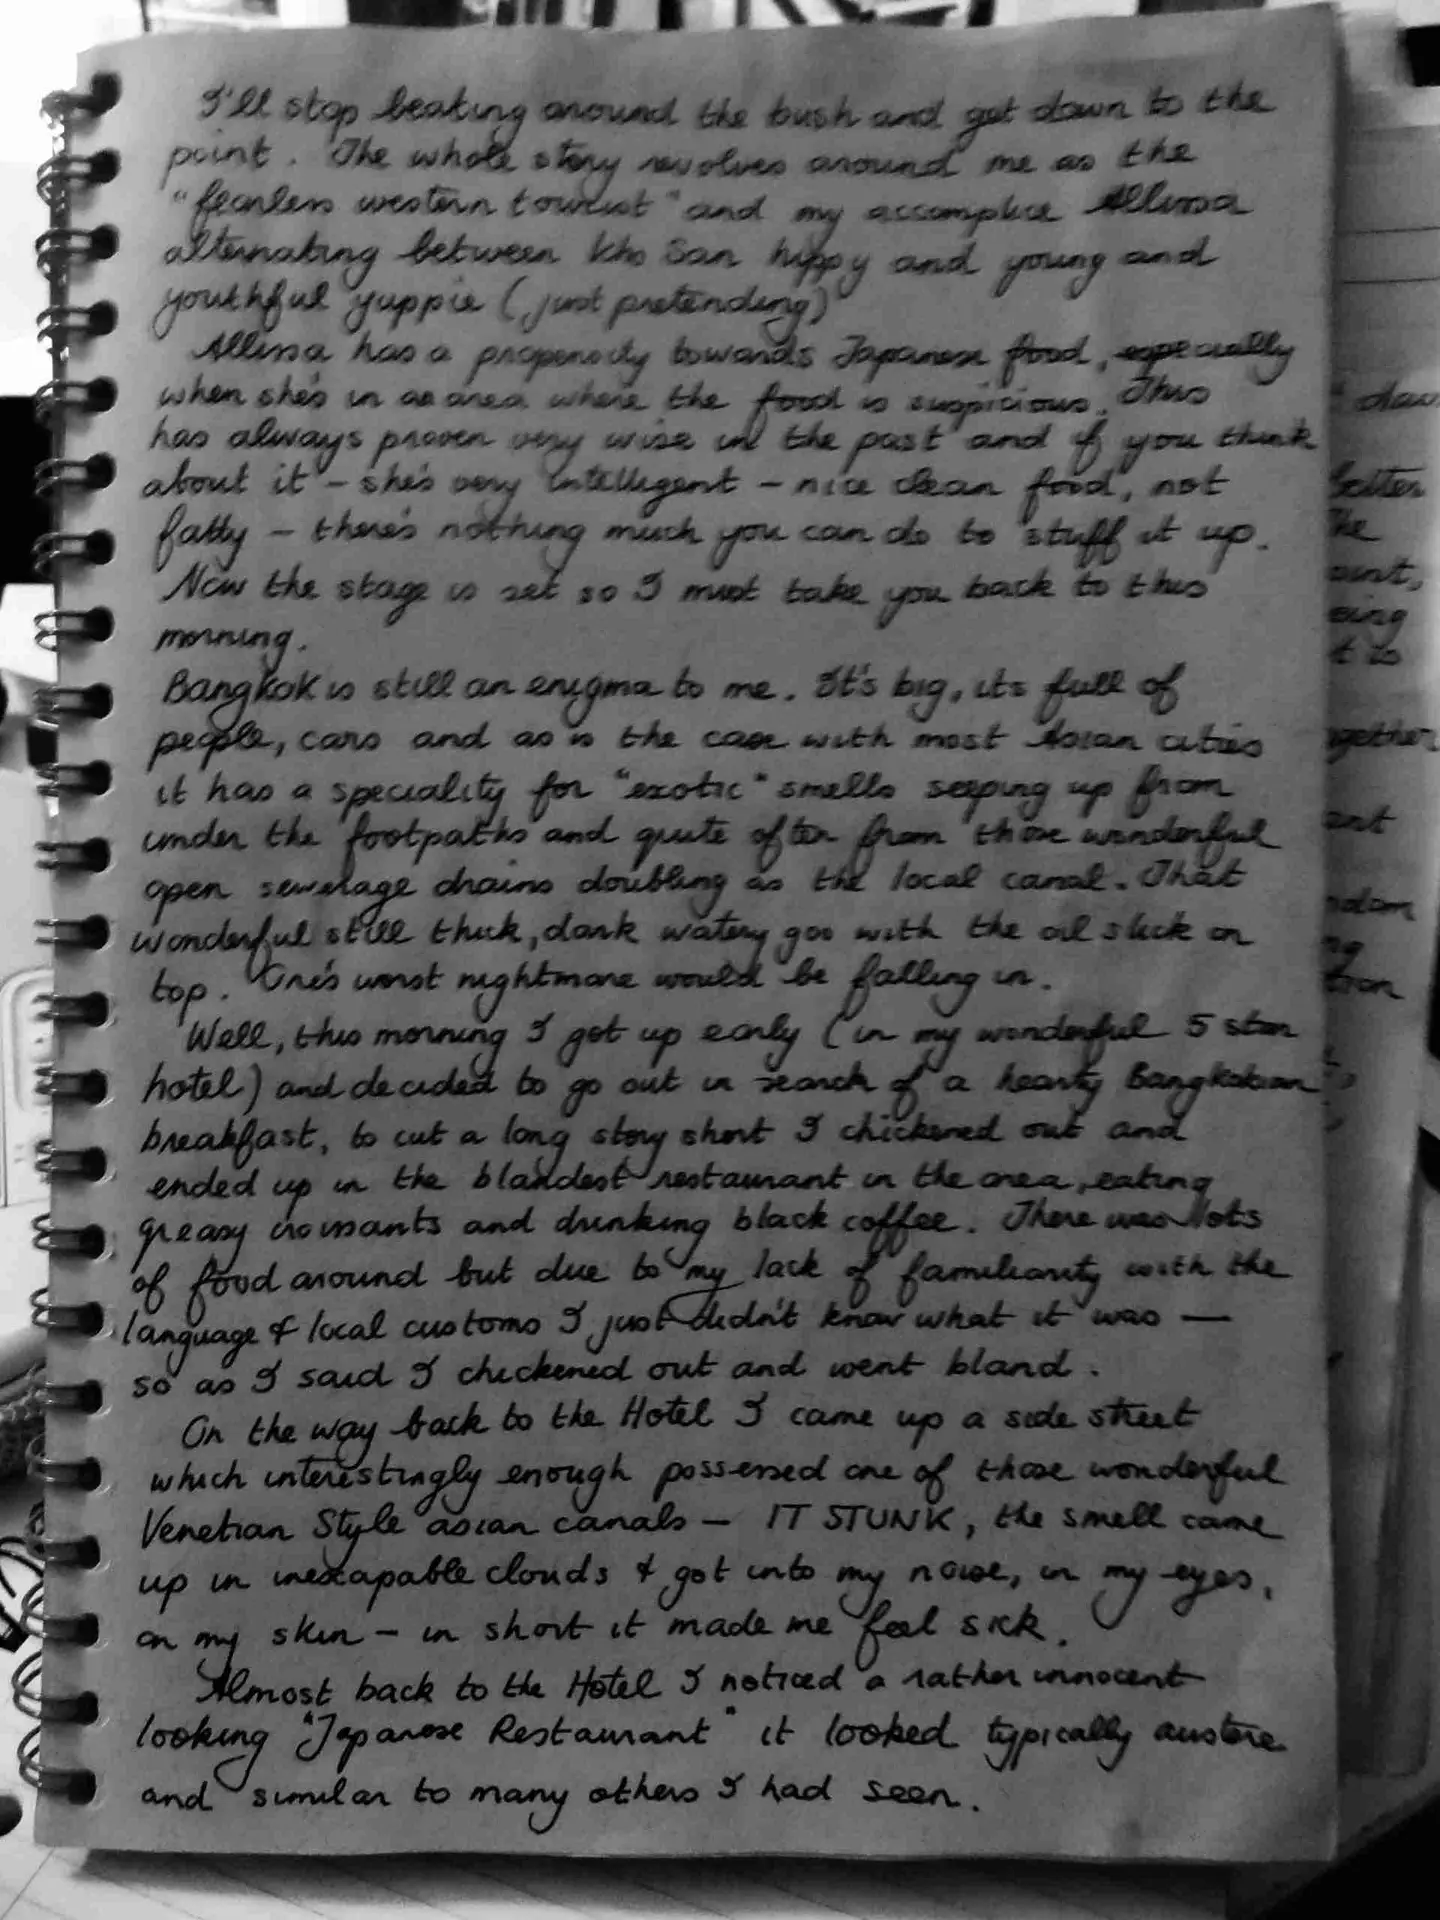 I'll stop beating around the bush and get down to the
point. The whole story revolves around me as the
"fearless western tourist" and my accomplice Allissa
alternating between Kho San hippy and young and
youthful yuppie (just pretending)
Allissa has a propensity towards Japanese food, especially
when she's in an area where the food is suspicious. This
has always proven very wise in the past and if you think
about it – she's very intelligent – nice clean food, not
fatty – there's nothing much you can do to stuff it up.
Now the stage is set so I must take you back to this
morning.
Bangkok is still an enigma to me. It's big, its full of
people, cars and as is the case with most Asian cities
it has a speciality for "exotic" smells seeping up from
under the footpaths and quite often from those wonderful
open sewerage drains doubling as the local canal. That
wonderful still thick, dark watery goo with the oil slick on
top. One's worst nightmare would be falling in.
Well, this morning I got up early (in my wonderful 5 star
hotel) and decided to go out in search of a hearty Bangkokian
breakfast, to cut a long story short I chickened out and
ended up in the blandest restaurant in the area, eating
greasy croissants and drinking black coffee. There was lots
of food around but due to my lack of familiarity with the
language & local customs I just didn't know what it was —
so as I said I chickened out and went bland.
On the way back to the Hotel I came up a side street
which interestingly enough possessed one of those wonderful
Venetian Style asian canals – IT STUNK, the smell came
up in inescapable clouds & got into my nose, in my eyes,
on my skin – in short it made me feel sick.
Almost back to the Hotel I noticed a rather innocent
looking "Japanese Restaurant" it looked typically austere
and similar to many others I had seen.